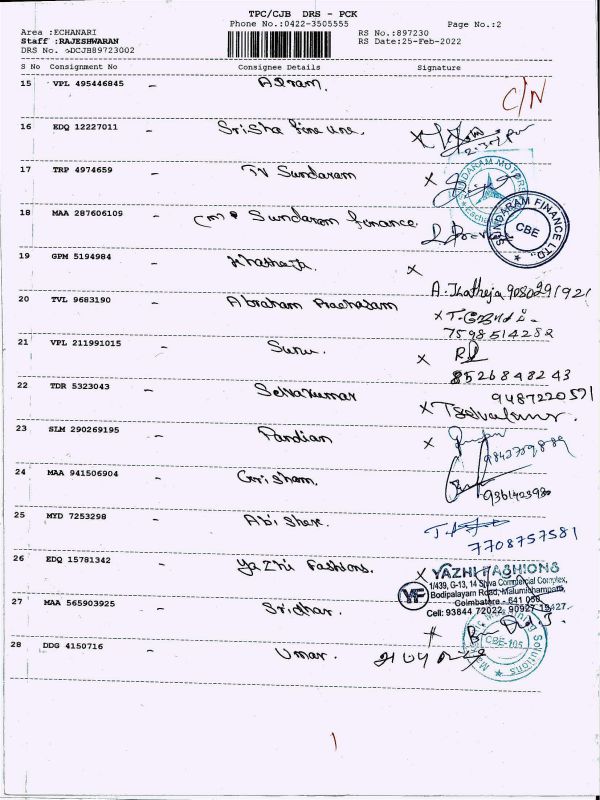 TPC/CJB DRS - PCK
Phone No.:0422-3505555
Page No.:2
Area :ECHANARI
RS No.:897230
Staff :RAJESHWARAN
RS Date:25-Feb-2022
DRS No. DCJB89723002
S No Consignment No Consignee Details Signature
15 VPL 495446845 - C/N
16 EDQ 12227011 - x
17 TRP 4974659 - TV Sundaram x
SUNDARAM MOTORS
18 MAA 287606109 - Sundaram finance
SUNDARAM FINANCE LTD.,
CBE
19 GPM 5194984 - Khatheja x
A. Jhatheja 9080291921
20 TVL 9683190 - Abraham x
7598514282
21 VPL 211991015 - x
8526848243
22 TDR 5323043 - Selvakumar 9487220571
x T Selvakumar.
23 SLM 290269195 - Pandian x
9842759889
24 MAA 941506904 - Grisham.
25 MYD 7253298 - Abishek.
7708757581
26 EDQ 15781342 - Yazhi Fashions. x
YAZHI FASHIONS
YF
1/439, G-13, 14 Shiva Commercial Complex,
Bodipalayam Road, Malumichampatti,
Coimbatore - 641 050.
Cell: 93844 72022, 90927 18427
27 MAA 565903925 - Sridhar.
Solutions
CBE-105
28 DDG 4150716 - Umar.
1